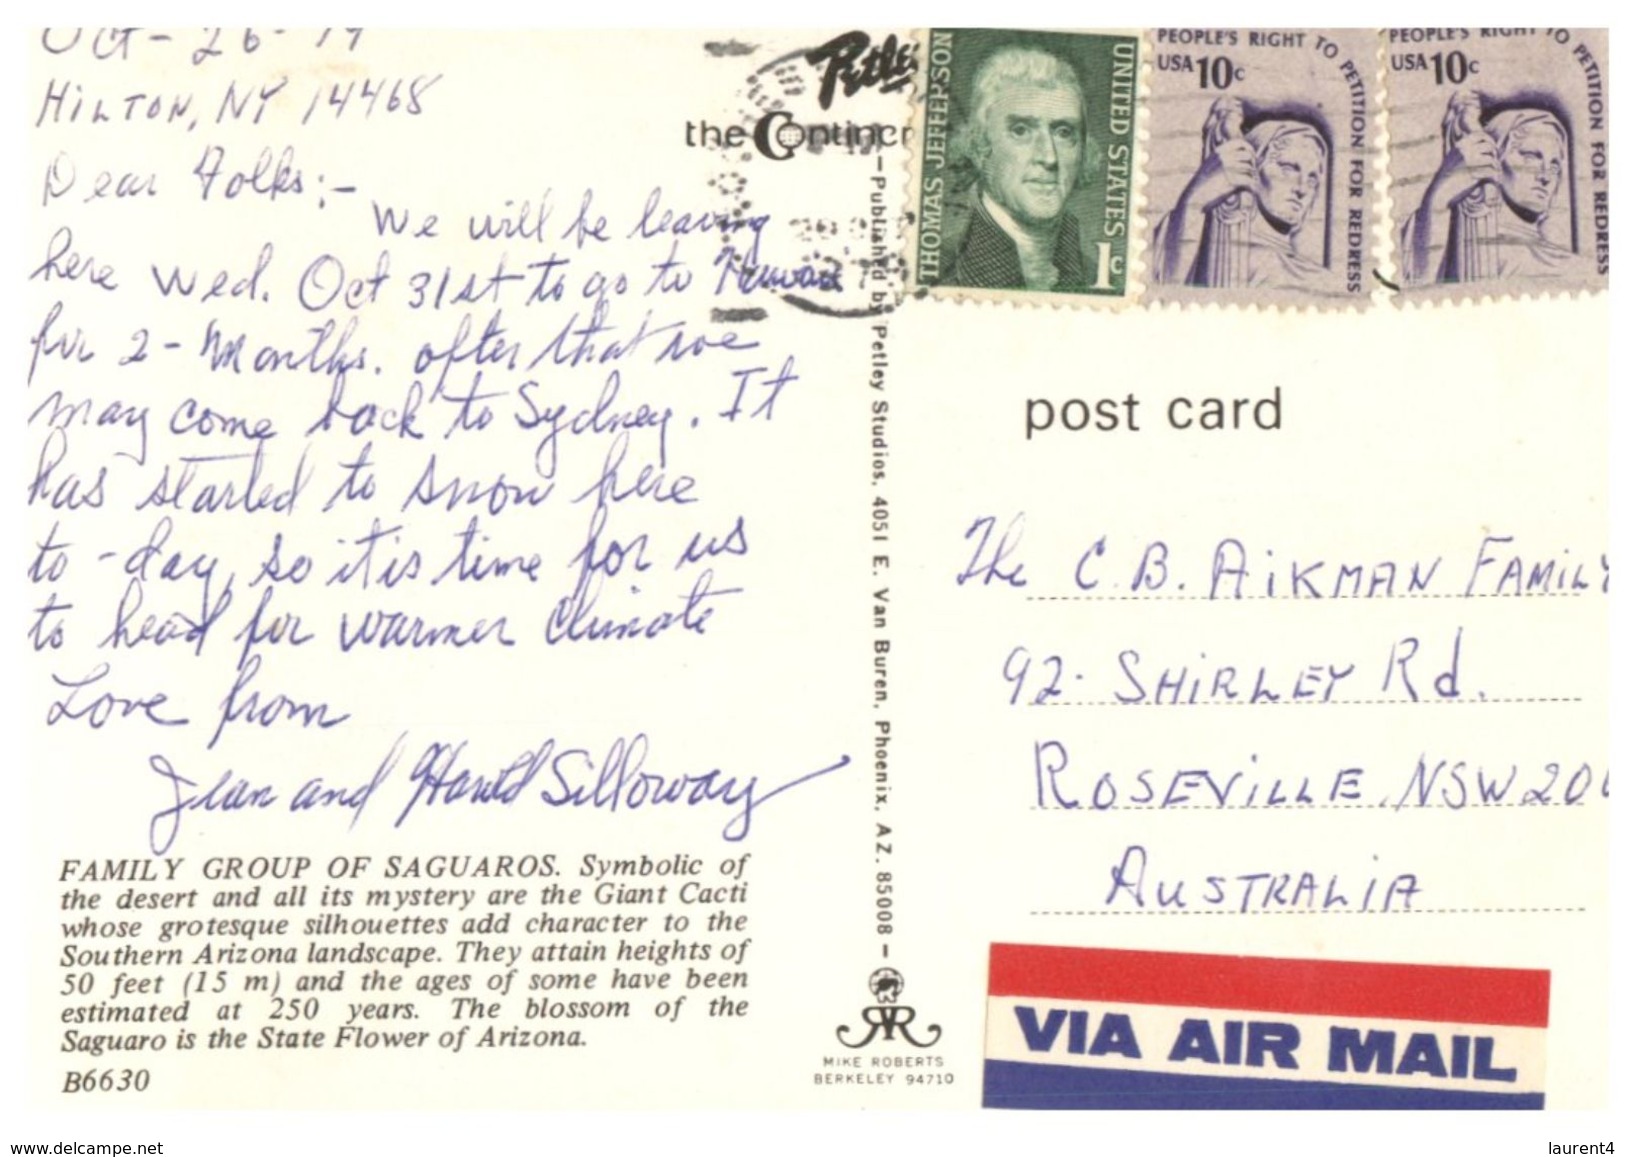 Oct - 26 - 79
HILTON, NY 14468
Dear Folks:-
We will be leaving
here Wed. Oct 31st to go to Hawaii
for 2 - Months. after that we
may come back to Sydney. It
has started to snow here
to-day, so it is time for us
to head for warmer climate
Love from
Jean and Harold Silloway
FAMILY GROUP OF SAGUAROS. Symbolic of
the desert and all its mystery are the Giant Cacti
whose grotesque silhouettes add character to the
Southern Arizona landscape. They attain heights of
50 feet (15 m) and the ages of some have been
estimated at 250 years. The blossom of the
Saguaro is the State Flower of Arizona.
B6630
Petle
the Contine
—Published by Petley Studios, 4051 E. Van Buren, Phoenix, AZ. 85008—
MIKE ROBERTS
BERKELEY 94710
THOMAS JEFFERSON
UNITED STATES
1c
PEOPLE'S RIGHT TO PETITION FOR REDRESS
USA 10c
PEOPLE'S RIGHT TO PETITION FOR REDRESS
USA 10c
post card
The C.B. AIKMAN FAMILY
92. SHIRLEY Rd.
ROSEVILLE, NSW 20
AUSTRALIA
VIA AIR MAIL
www.delcampe.net
laurent4